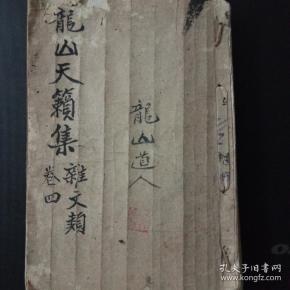 龍山天籟集
雜文類
卷四
龍山道人
孔夫子旧书网